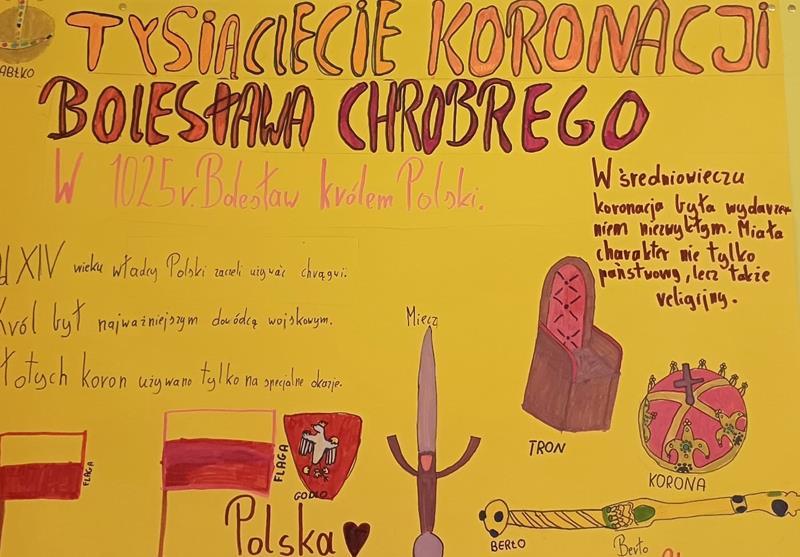 TYSIĄCLECIE KORONACJI
BOLESŁAWA CHROBREGO
W 1025r. Bolesław królem Polski.
W średniowieczu
koronacja była wydarze-
niem niezwykłym. Miała
charakter nie tylko
państwowy, lecz także
religijny.
d XIV wieku władcy Polski zaczeli używać chrągwi.
Król był najważniejszym dowódcą wojskowym.
łotych koron używano tylko na specjalne okazje.
ABŁKO
Miecz
TRON
KORONA
FLAGA
FLAGA
GODŁO
BERŁO
Berło
Polska